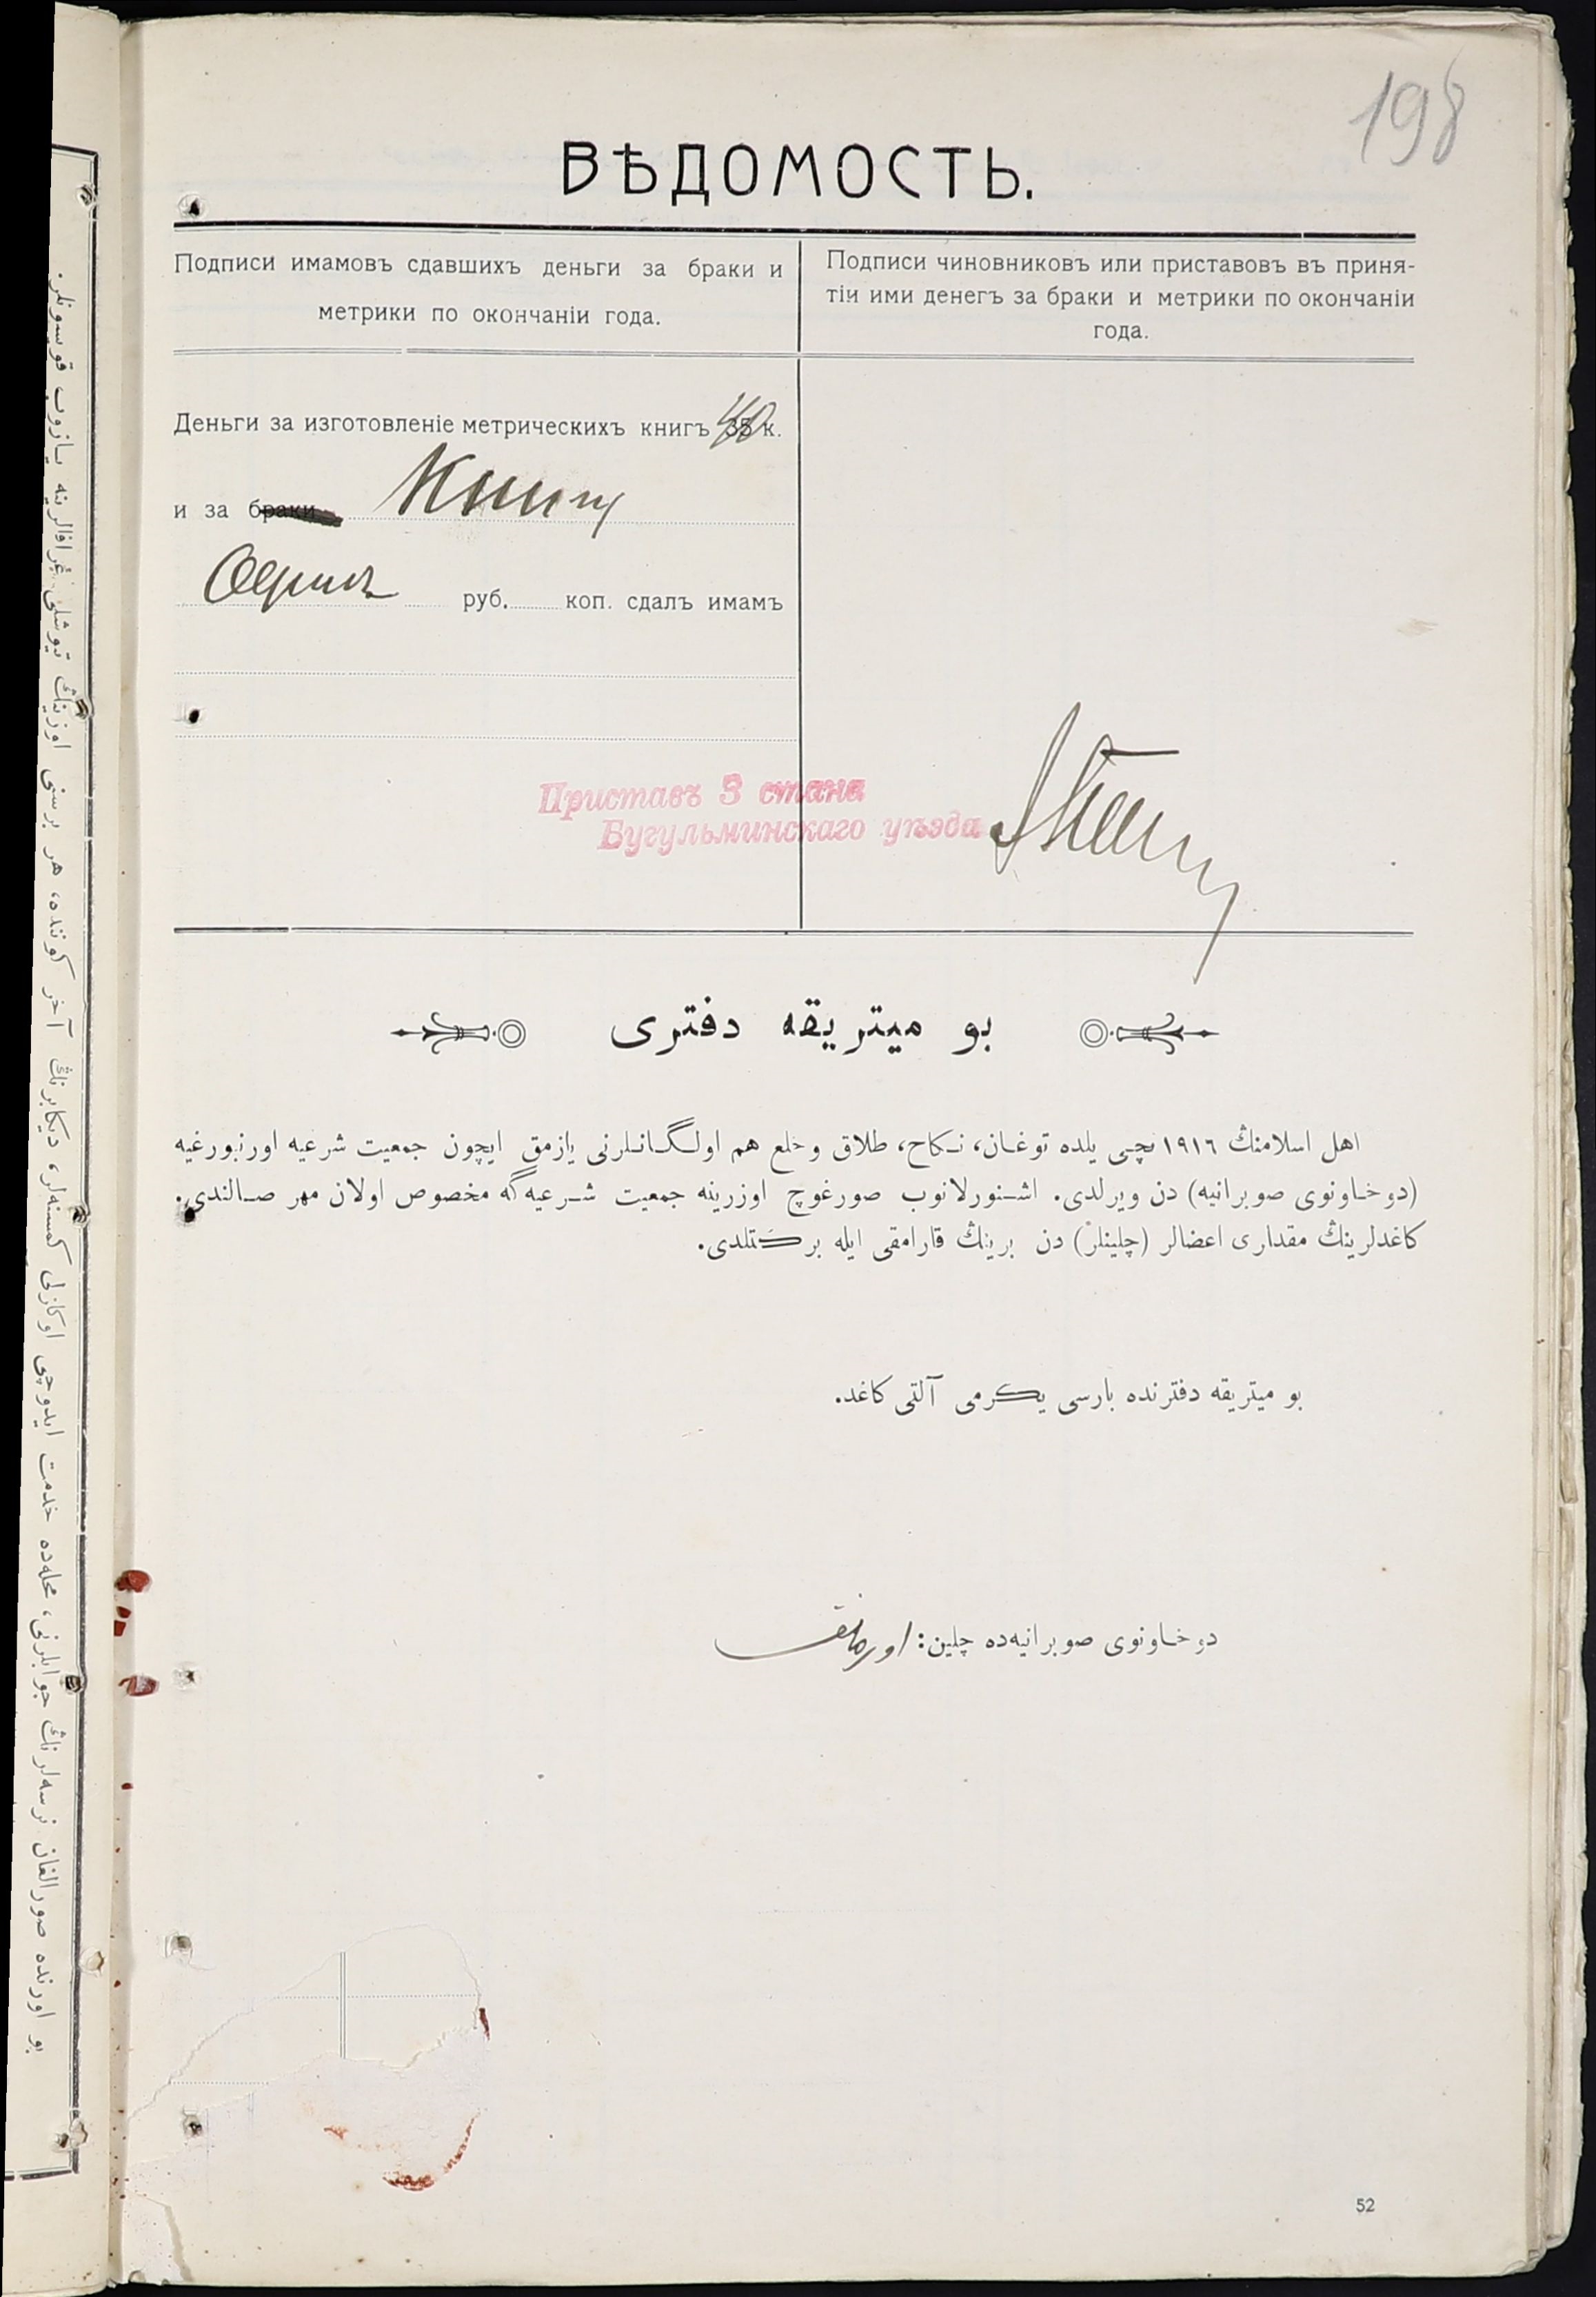 198
ВѢДОМОСТЬ.
Подписи имамовъ сдавшихъ деньги за браки и
метрики по окончаніи года.
Подписи чиновниковъ или приставовъ въ приня-
тіи ими денегъ за браки и метрики по окончаніи
года.
Деньги за изготовленіе метрическихъ книгъ 40 к.
и за браки Книгу
руб. коп. сдалъ имамъ
Приставъ 3 стана
Бугульминскаго уѣзда
بو ميتريقه دفترى
اهل اسلامنڭ ١٩١٦ نچى يلده توغان، نكاح، طلاق وخلع هم اولگانلرنى يازمق ايچون جمعيت شرعيه اورنبورغيه
(دوخاونوى صوبرانيه) دن ويرلدى. اشنورلانوب صورغوچ اوزرينه جمعيت شرعيه گه مخصوص اولان مهر صالندى.
كاغدلرينڭ مقدارى اعضالر (چلينلر) دن برينڭ قارامقى ايله بركتلدى.
بو ميتريقه دفترنده بارسى يكرمى آلتى كاغد.
دوخاونوى صوبرانيه‌ده چلين:
52
بو اورنده صورالغان نرسه‌لرنڭ جوابلرنى، محله‌ده خدمت ايدوچى اوكازلى كمسنه‌لر، ديكابرنڭ آخر كوننده، هر برسى اوزينڭ تيوشلى غرافالرينه يازوب قويسونلر.